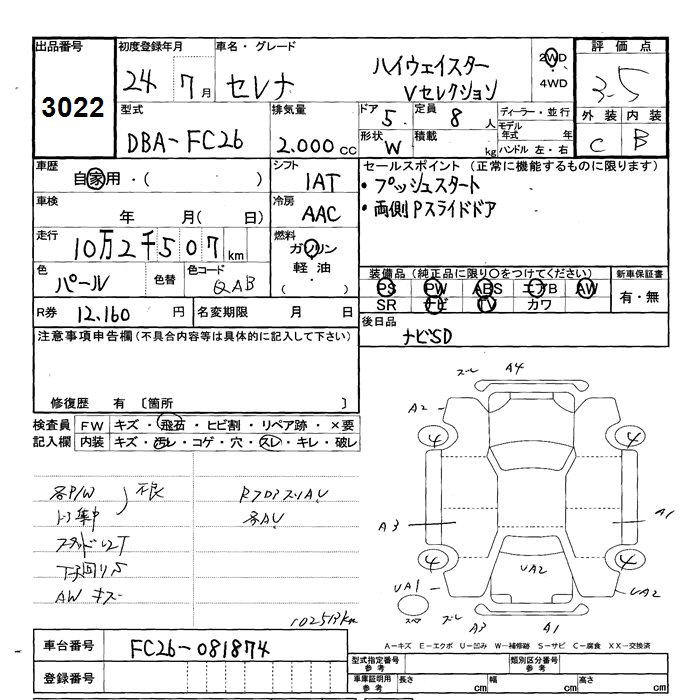 出品番号
3022
初度登録年月
24 7月
車名・グレード
セレナ
ハイウェイスター
Vセレクション
2WD
4WD
評価点
3.5
外装 内装
C B
型式
DBA-FC26
排気量
2.000cc
ドア 5
定員 8人
形状 W
積載 kg
ディーラー・並行
モデル年式 年
ハンドル 左・右
車歴
自家用・( )
シフト
IAT
車検
年 月( 日)
冷房
AAC
走行
10万2千507km
燃料
ガソリン
軽油
( )
色
パール
色替
色コード
QAB
R券 12.160円
名変期限 月 日
セールスポイント(正常に機能するものに限ります)
・プッシュスタート
・両側Pスライドドア
装備品(純正品に限り○をつけてください)
PS PW ABS エアB AW
SR ナビ TV カワ
新車保証書
有・無
後日品
ナビSD
注意事項申告欄(不具合内容等は具体的に記入して下さい)
修復歴 有 〔箇所 〕
検査員記入欄
FW キズ・飛石・ヒビ割・リペア跡・×要
内装 キズ・汚レ・コゲ・穴・スレ・キレ・破レ
各P/W
不良
下回りS
AW キズ
各AU
102513km
ズレ A4
A2
4 4
A3 A1
4 4
UA2
UA1 UA2
スペア
ズレ A3 A1
A-キズ E-エクボ U-凹み W-補修跡 S-サビ C-腐食 XX-交換済
車台番号
FC26-081874
登録番号
型式指定番号
参考
類別区分番号
参考
車庫証明用
参考
長さ cm
幅 cm
高さ cm